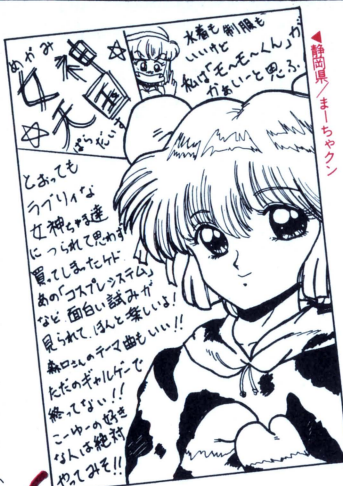 めがみ
女神
天国
ぱらだいす
水着も制服も
いいけど
私は「モ〜モ〜くん」が
かぁいーと思ふ
◀静岡県/まーちゃクン
とおっても
ラブリィな
女神ちゃま達
につられて思わず
買ってしまったケド
あの「コスプレシステム」
など面白い試みが
見られて、ほんと楽しいよ!
森口さんのテーマ曲もいい!!
ただのギャルゲーで
終ってない!!
こーゆーの好き
な人は絶対
やってみそ!!